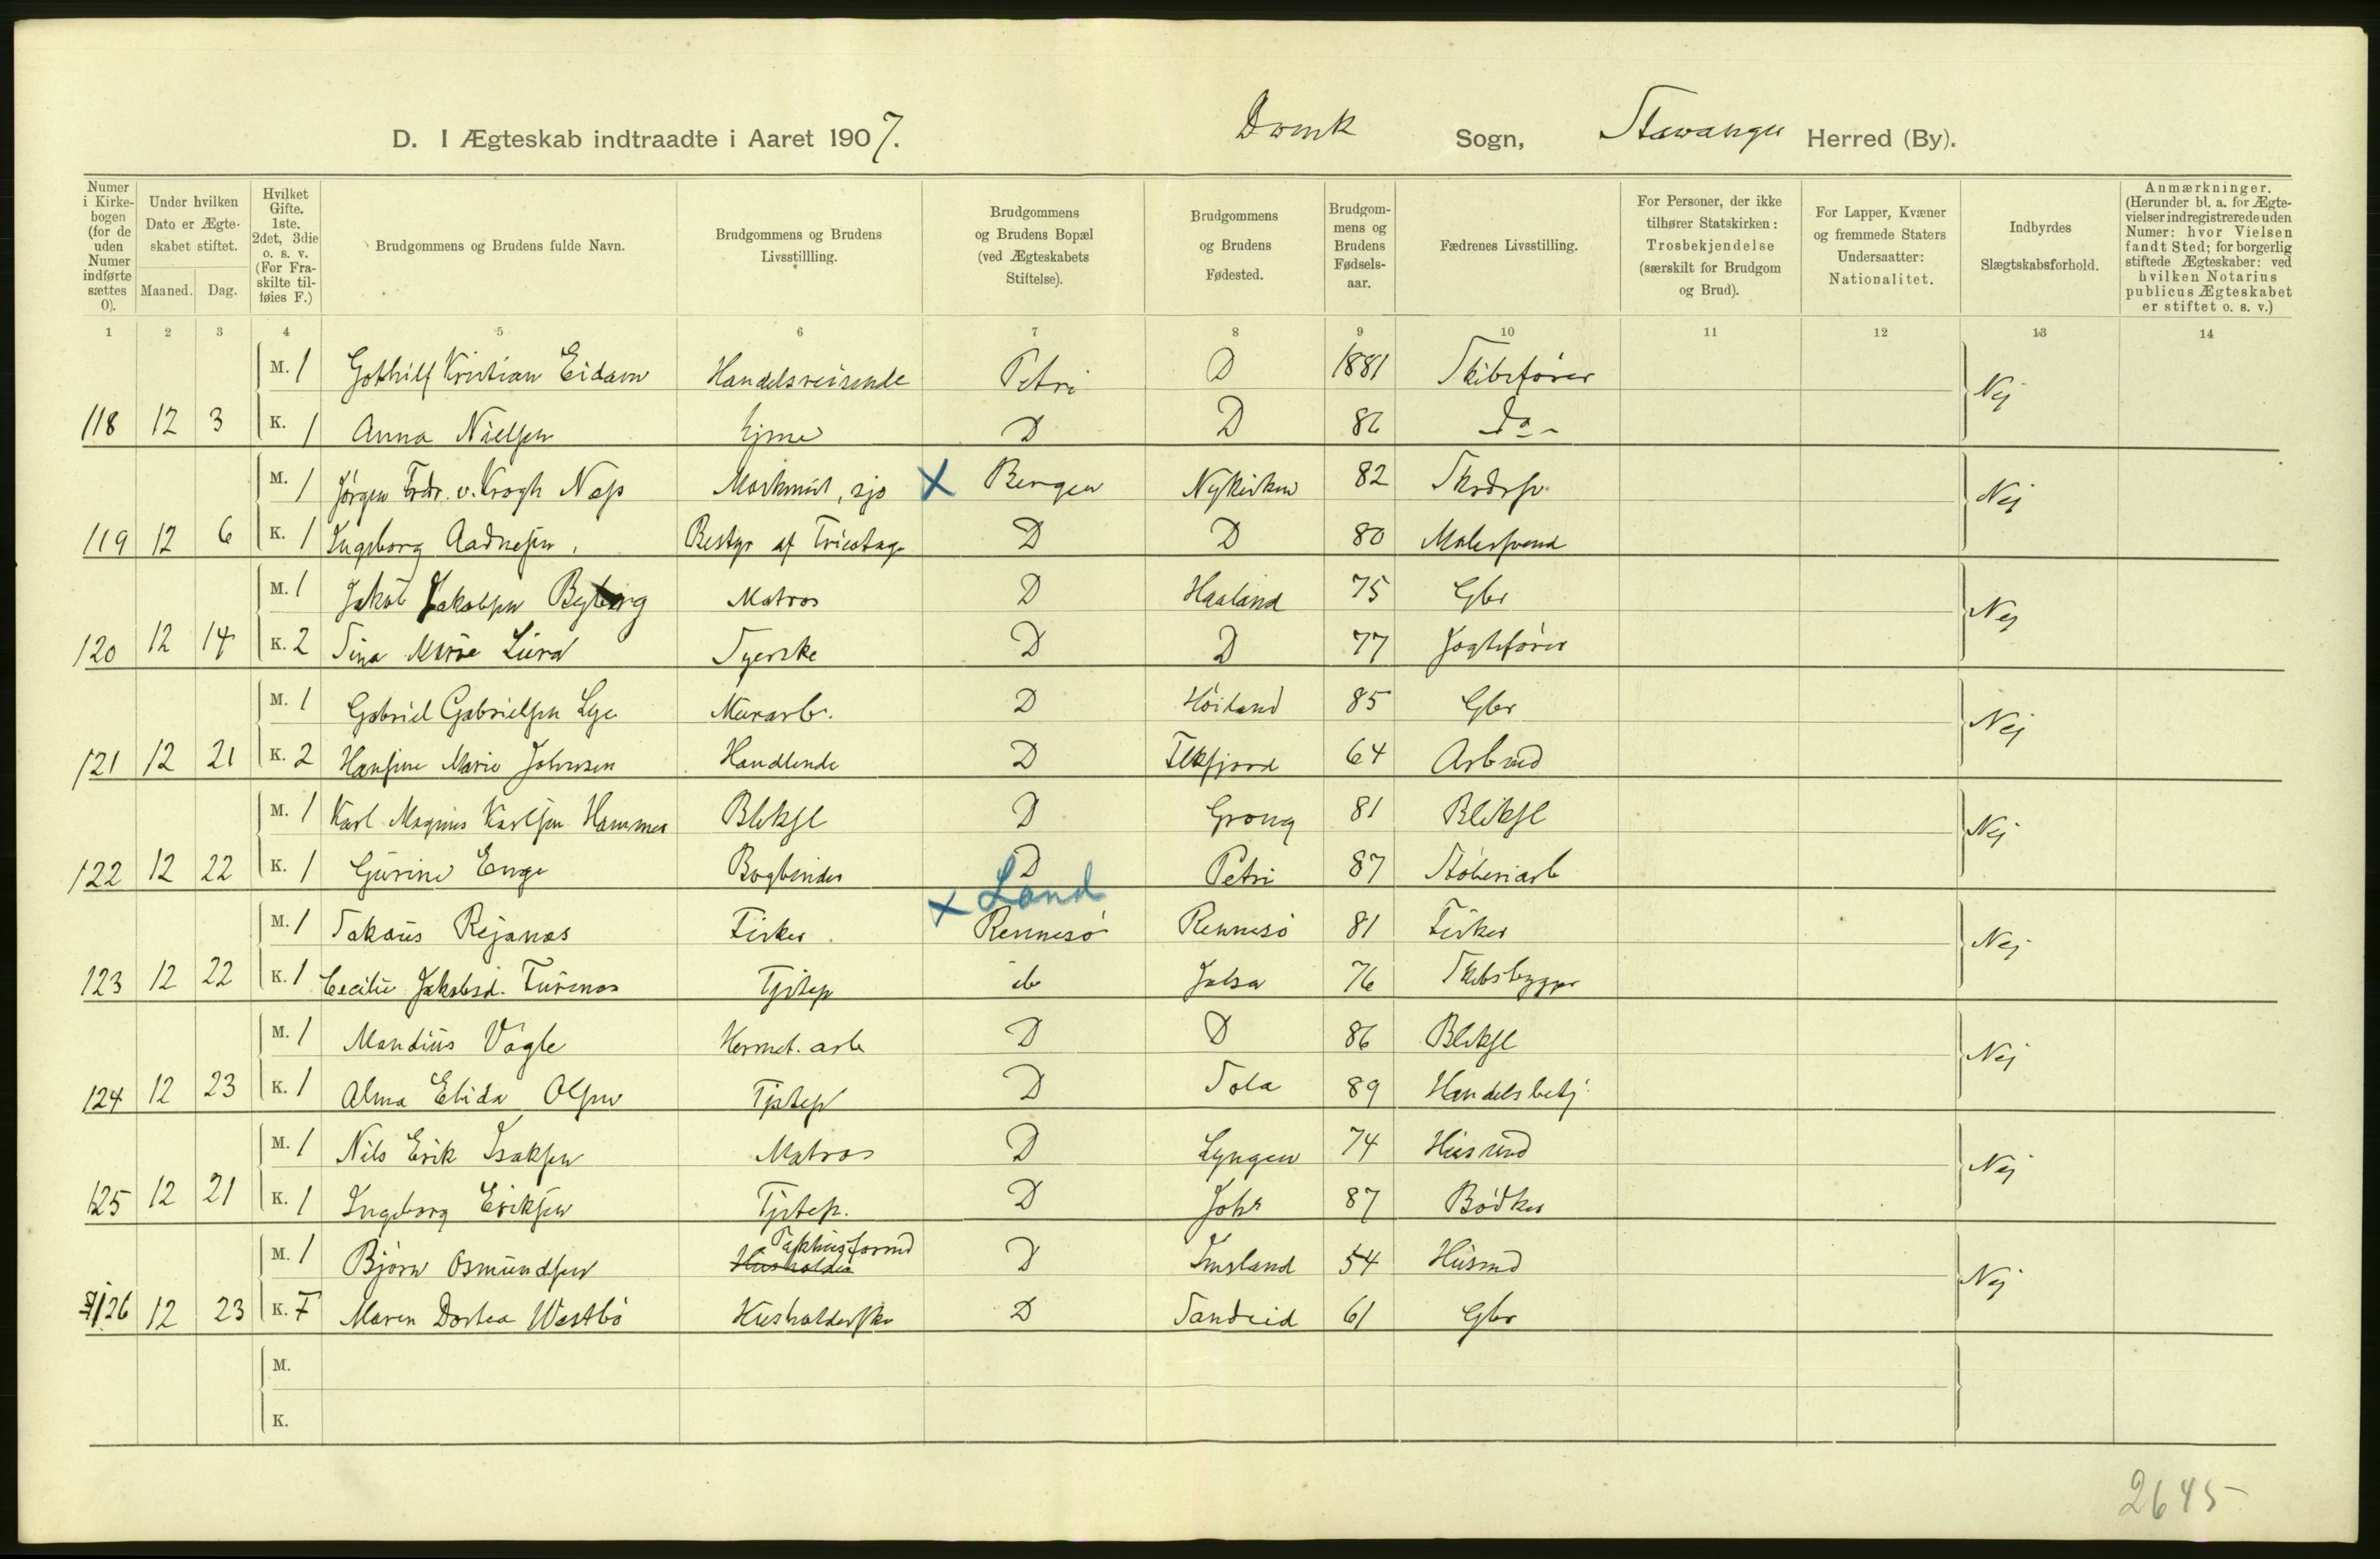 D. I Ægteskab indtraadte i Aaret 1907. Domk Sogn, Stavanger Herred (By).
Numer i Kirkebogen (for de uden Numer indførte sættes 0).
Under hvilken Dato er Ægteskabet stiftet.
Maaned. Dag.
Hvilket Gifte. 1ste, 2det, 3die o. s. v. (For Fraskilte tilføies F.)
Brudgommens og Brudens fulde Navn.
Brudgommens og Brudens Livsstillling.
Brudgommens og Brudens Bopæl (ved Ægteskabets Stiftelse).
Brudgommens og Brudens Fødested.
Brudgommens og Brudens Fødselsaar.
Fædrenes Livsstilling.
For Personer, der ikke tilhører Statskirken: Trosbekjendelse (særskilt for Brudgom og Brud).
For Lapper, Kvæner og fremmede Staters Undersaatter: Nationalitet.
Indbyrdes Slægtskabsforhold.
Anmærkninger. (Herunder bl. a. for Ægtevielser indregistrerede uden Numer: hvor Vielsen fandt Sted; for borgerlig stiftede Ægteskaber: ved hvilken Notarius publicus Ægteskabet er stiftet o. s. v.)
1 2 3 4 5 6 7 8 9 10 11 12 13 14
M. 1 Gothilf Kristian Eidam Handelsreisende Petri D 1881 Skibsfører Nej
118 12 3 K. 1 Anna Nielsen Hjme D D 86 do
M. 1 Jørgen Fredr. v. Krogh Næss Maskmst, sjø X Bergen Nykirken 82 Nej
119 12 6 K. 1 Ingeborg Aadnesen Bestyr af Tricotage D D 80 Malersvend
M. 1 Jakob Jakobsen Byberg Matros D Haaland 75 Gbr Nej
120 12 14 K. 2 Tina Marie Lura Syerske D D 77 Jagtefører
M. 1 Gabriel Gabrielsen Lye Murarb. D Høiland 85 Gbr Nej
121 12 21 K. 2 Hansine Marie Johnsen Handlende D Flekfjord 64 Arbmd
M. 1 Karl Magnus Karlsen Hammer Bliksl D Grong 81 Bliksl Nej
122 12 22 K. 1 Gurine Enge Bogbinder D Petri 87 Støberiarb
X Land
M. 1 Sakaus Reianæs Fisker Rennesø Rennesø 81 Fisker Nej
123 12 22 K. 1 Cecilie Jakobsd. Furenæs Tjstep do Jelsa 76 Skibsbygger
M. 1 Mandius Vagle Hermet. arb D D 86 Bliksl Nej
124 12 23 K. 1 Alma Elida Olsen Tjstep D Sola 89 Handelsbetj.
M. 1 Nils Erik Isaksen Matros D Lyngen 74 Husmd Nej
125 12 21 K. 1 Ingeborg Eriksen Tjstep. D Johs 87 Bødker
Pakhusformd
M. 1 Bjørn Osmundsen Husholder D Imsland 54 Husmd Nej
126 12 23 K. F Maren Dortea Westbø Husholderske D Sandeid 61 Gbr
M.
K.
2645